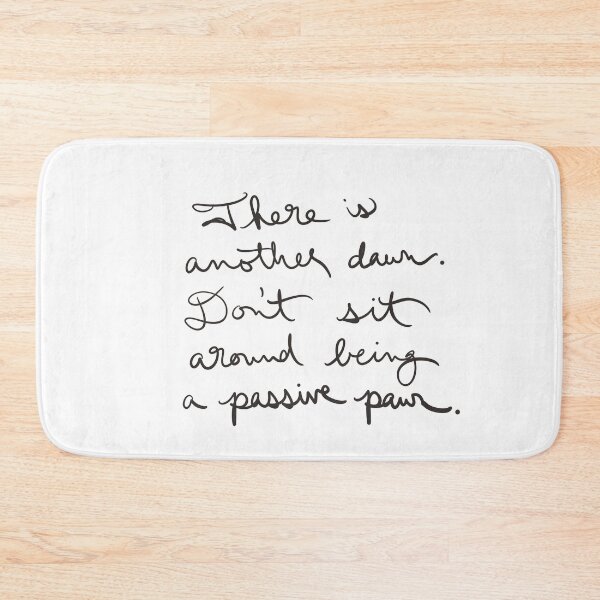 There is
another dawn.
Don't sit
around being
a passive pawn.